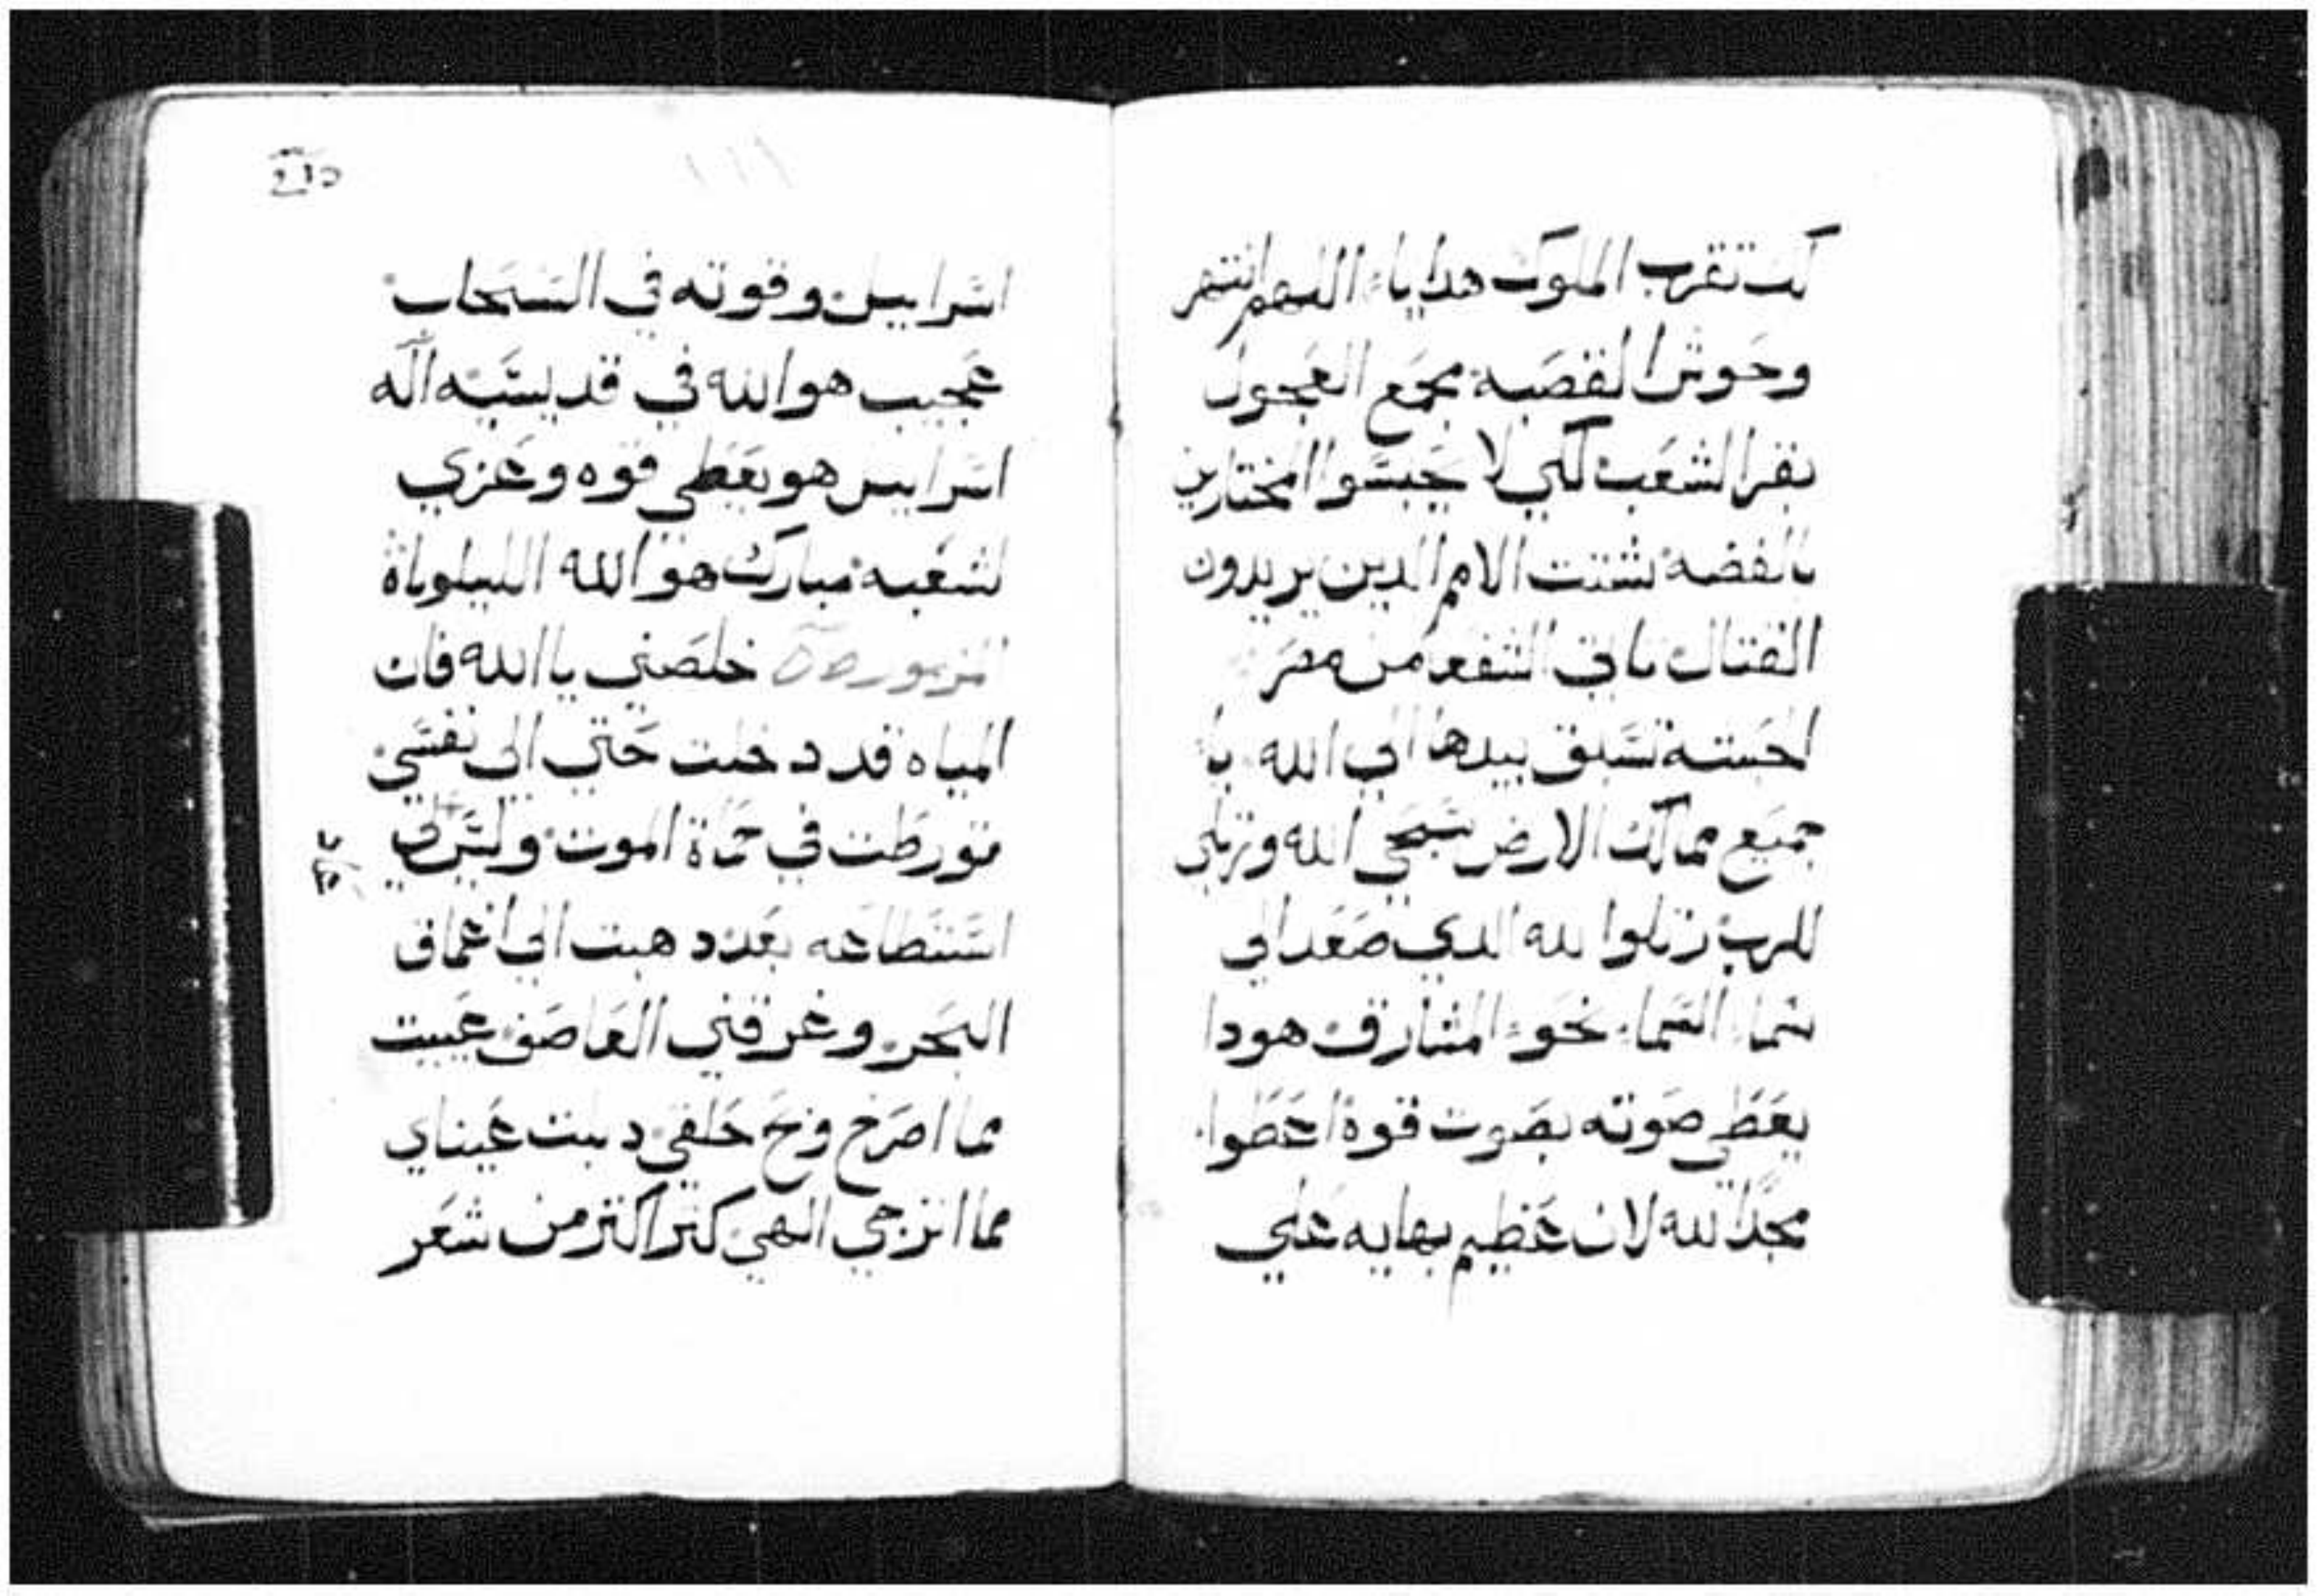 لك تقرب الملوك هدايا اللهم انتهر
وحوش القصبه مجمع العجول
بقر الشعب لكي لا يحبسوا المختارين
بالفضه شتت الامم الدين يريدون
القتال ياتي الشفعه من مصر
الحبشه تسبق بيدها الي الله يا
جميع ممالك الارض سبحي الله ورتلي
للرب رتلوا لله الدي صعد الي
سما السما نحو المشارق هودا
يعطي صوته بصوت قوه اعطوا
مجدا لله لان عظيم بهايه علي
اسراييل وقوته في السحاب
عجيب هو الله في قديسيه اله
اسراييل هو يعطي قوه وعزي
لشعبه مبارك هو الله الليلوياة
المزمور خلصني يا الله فان
المياه قد دخلت حتي الي نفسي
تورطت في حماة الموت وليس لي
استطاعه بعد دهبت الي اعماق
البحر وغرقني العاصف عييت
مما اصرخ وبح حلقي دبلت عيناي
مما اترجي الهي كتر اكتر من شعر